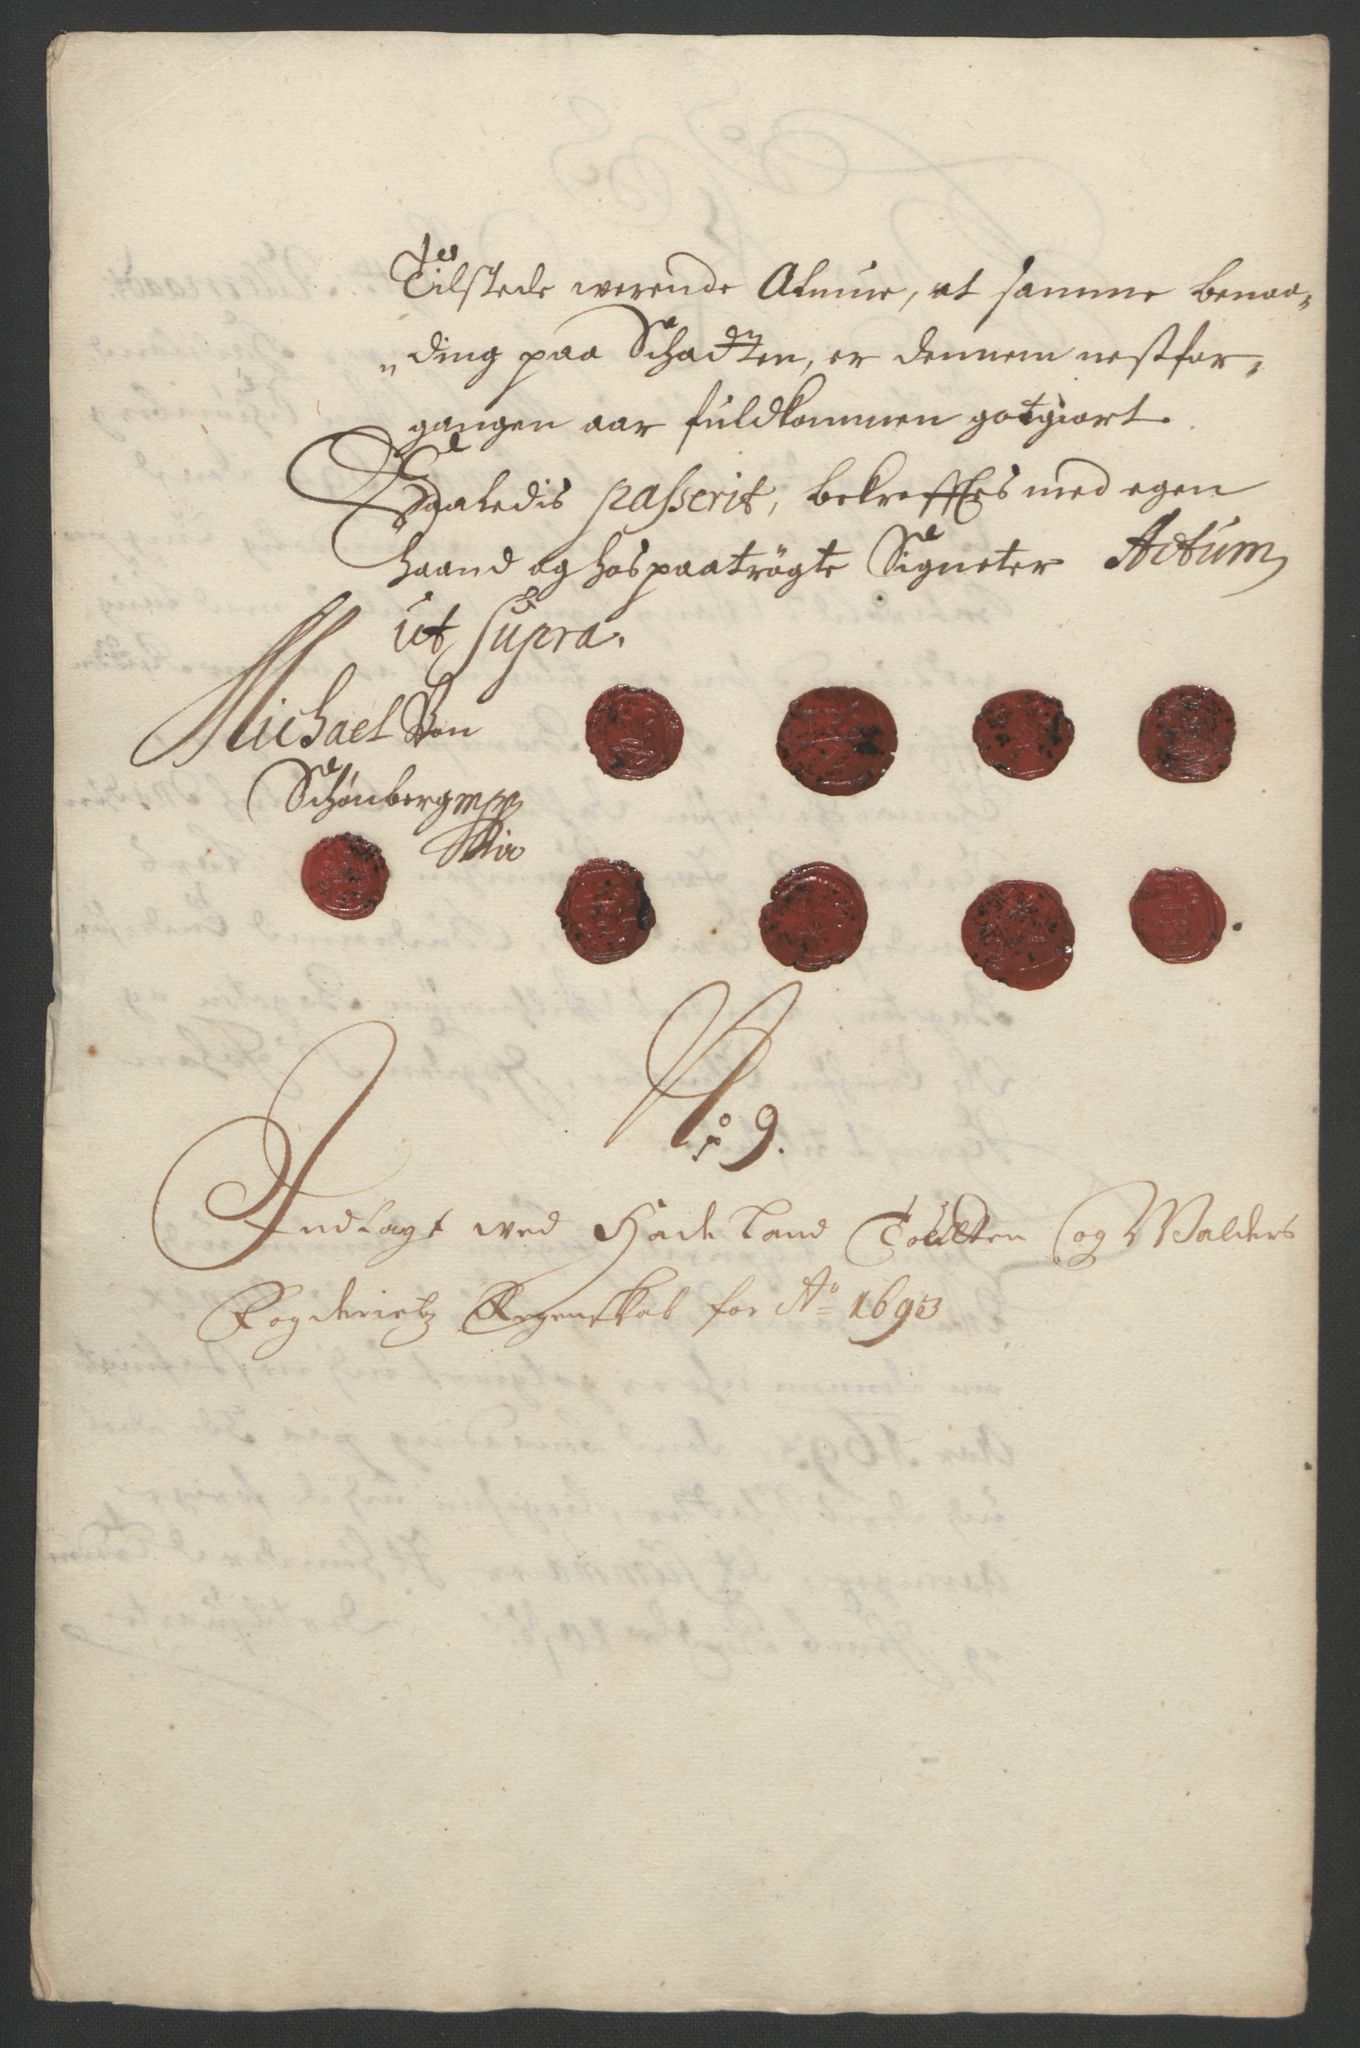 Tilstede werende Almue, at samme benaa-
„ding paa Schadten, er dennem nestfor-
gangen aar fuldkommen gotgiort.
Saaledis passerit, bekrefftes med egen
haand og hos paatrögte Signeter Actum
ut supra.
Michael Von
Schønberg mp
No 9.
Indlagt ved Hadeland Toedten og Walders
Fogderietz Regenskab for Ao 1693